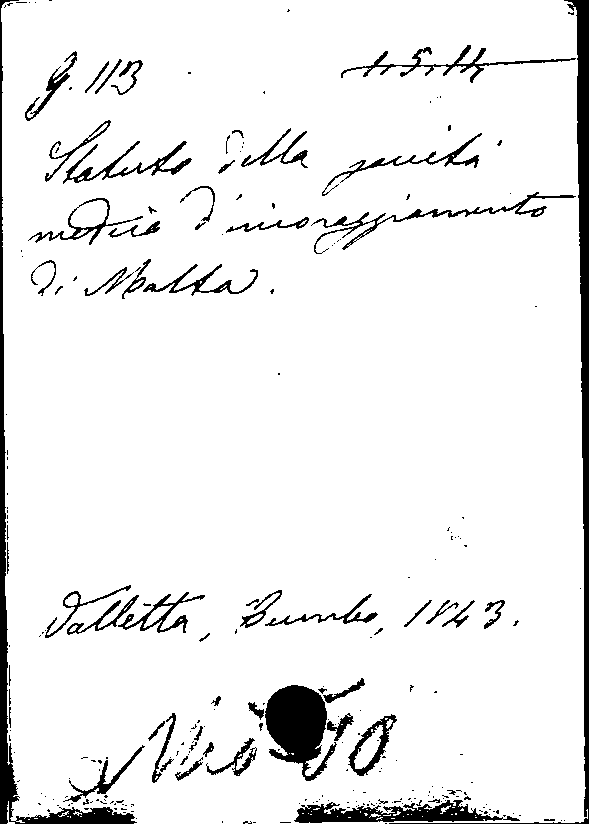 G. 113 1.5.14
Statuto della società
medica d'incoraggiamento
di Malta.
Valletta, Bumbo, 1843.